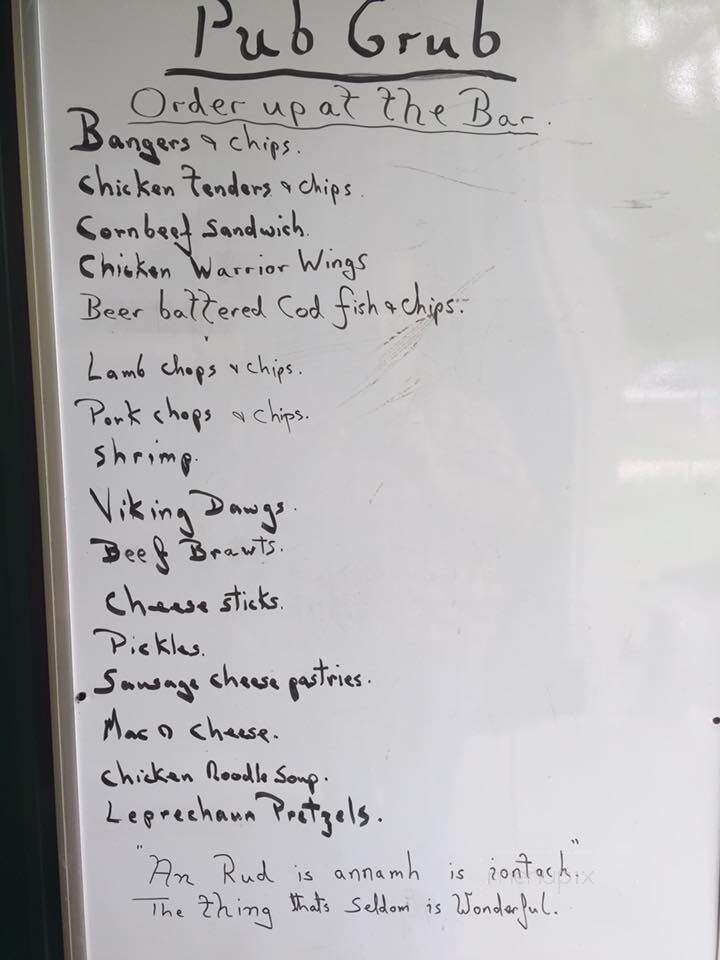 Pub Grub
Order up at the Bar.
Bangers & chips.
Chicken Tenders & chips.
Cornbeef Sandwich.
Chicken Warrior Wings
Beer battered Cod fish & chips.
Lamb chops & chips.
Pork chops & chips.
Shrimp.
Viking Dawgs.
Beef Brawts.
Cheese sticks.
Pickles.
Sausage cheese pastries.
Mac n Cheese.
Chicken Noodle Soup.
Leprechaun Pretzels.
"An Rud is annamh is iontach."
The thing thats Seldom is Wonderful.